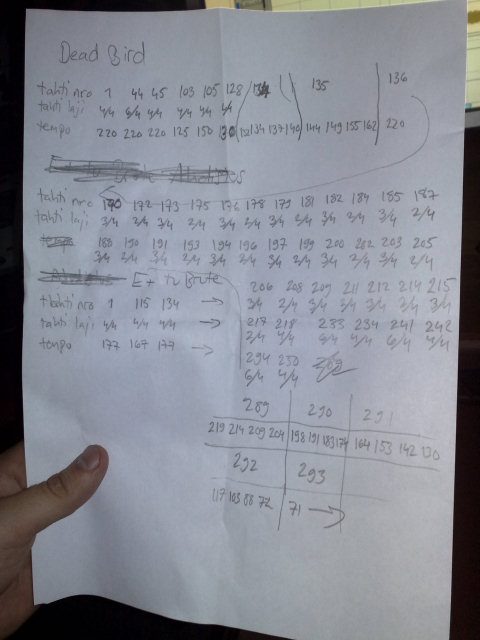 Dead Bird
tahti nro 1 44 45 103 105 128 134 135 136
tahti laji 4/4 4/4 4/4 4/4 4/4 4/4
tempo 220 220 220 125 150 130 132 134 137 140 144 149 155 162 220
tahti nro 170 172 173 175 176 178 179 181 182 184 185 187
tahti laji 3/4 2/4 3/4 2/4 3/4 2/4 3/4 2/4 3/4 2/4 3/4 2/4
188 190 191 193 194 196 197 199 200 202 203 205
3/4 2/4 3/4 2/4 3/4 2/4 3/4 2/4 3/4 2/4 3/4 2/4
Et tu Brute
tahti nro 1 115 134 →
tahti laji 4/4 4/4 4/4 →
tempo 177 167 177 →
206 208 209 211 212 214 215
3/4 2/4 3/4 3/4 3/4 3/4
217 218 233 234 241 242
2/4 4/4 6/4 4/4 6/4 4/4
294 250
6/4 4/4
289 290 291
219 214 209 204 198 191 183 174 164 153 142 130
292 293
117 103 88 72 71 →